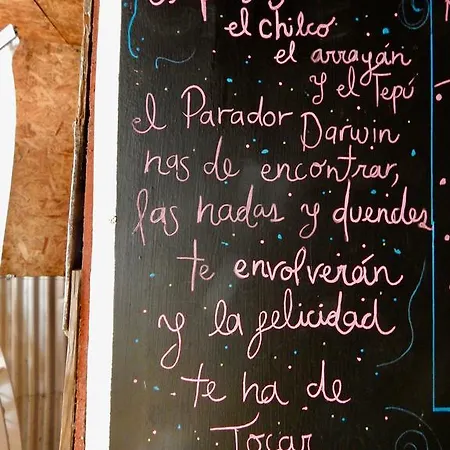 el chilco
el arrayán
y el Tepú
el Parador
Darwin
has de encontrar,
las hadas y duendes
te envolverán
y la felicidad
te ha de
Tocar